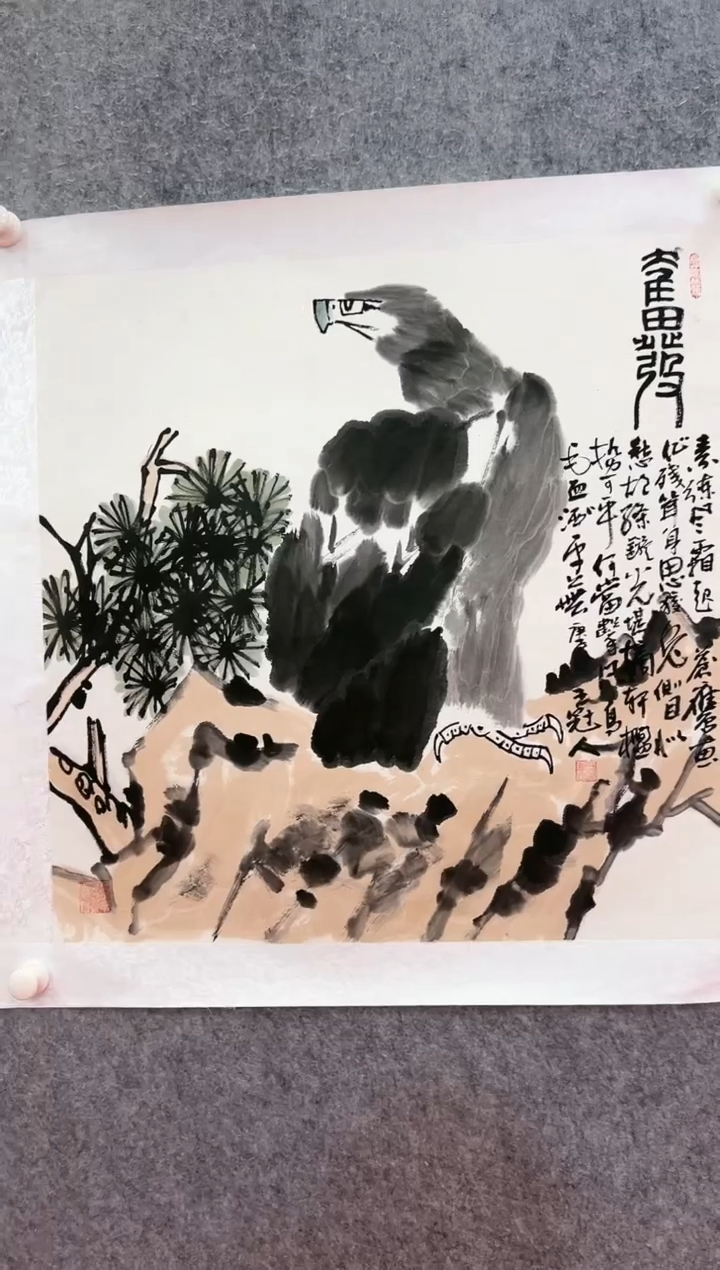 奮發
素练风霜起蒼鷹畫
作殊耸身思狡兔側目似
愁胡絛鏇光堪摘軒楹
勢可呼何當擊凡鳥
毛血洒平蕪